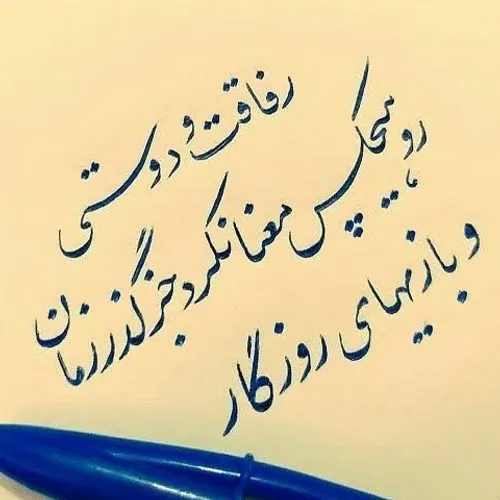 رفاقت و دوستی
رو هیچکس معنا نکرد جز گذر زمان
و بازیهای روزگار